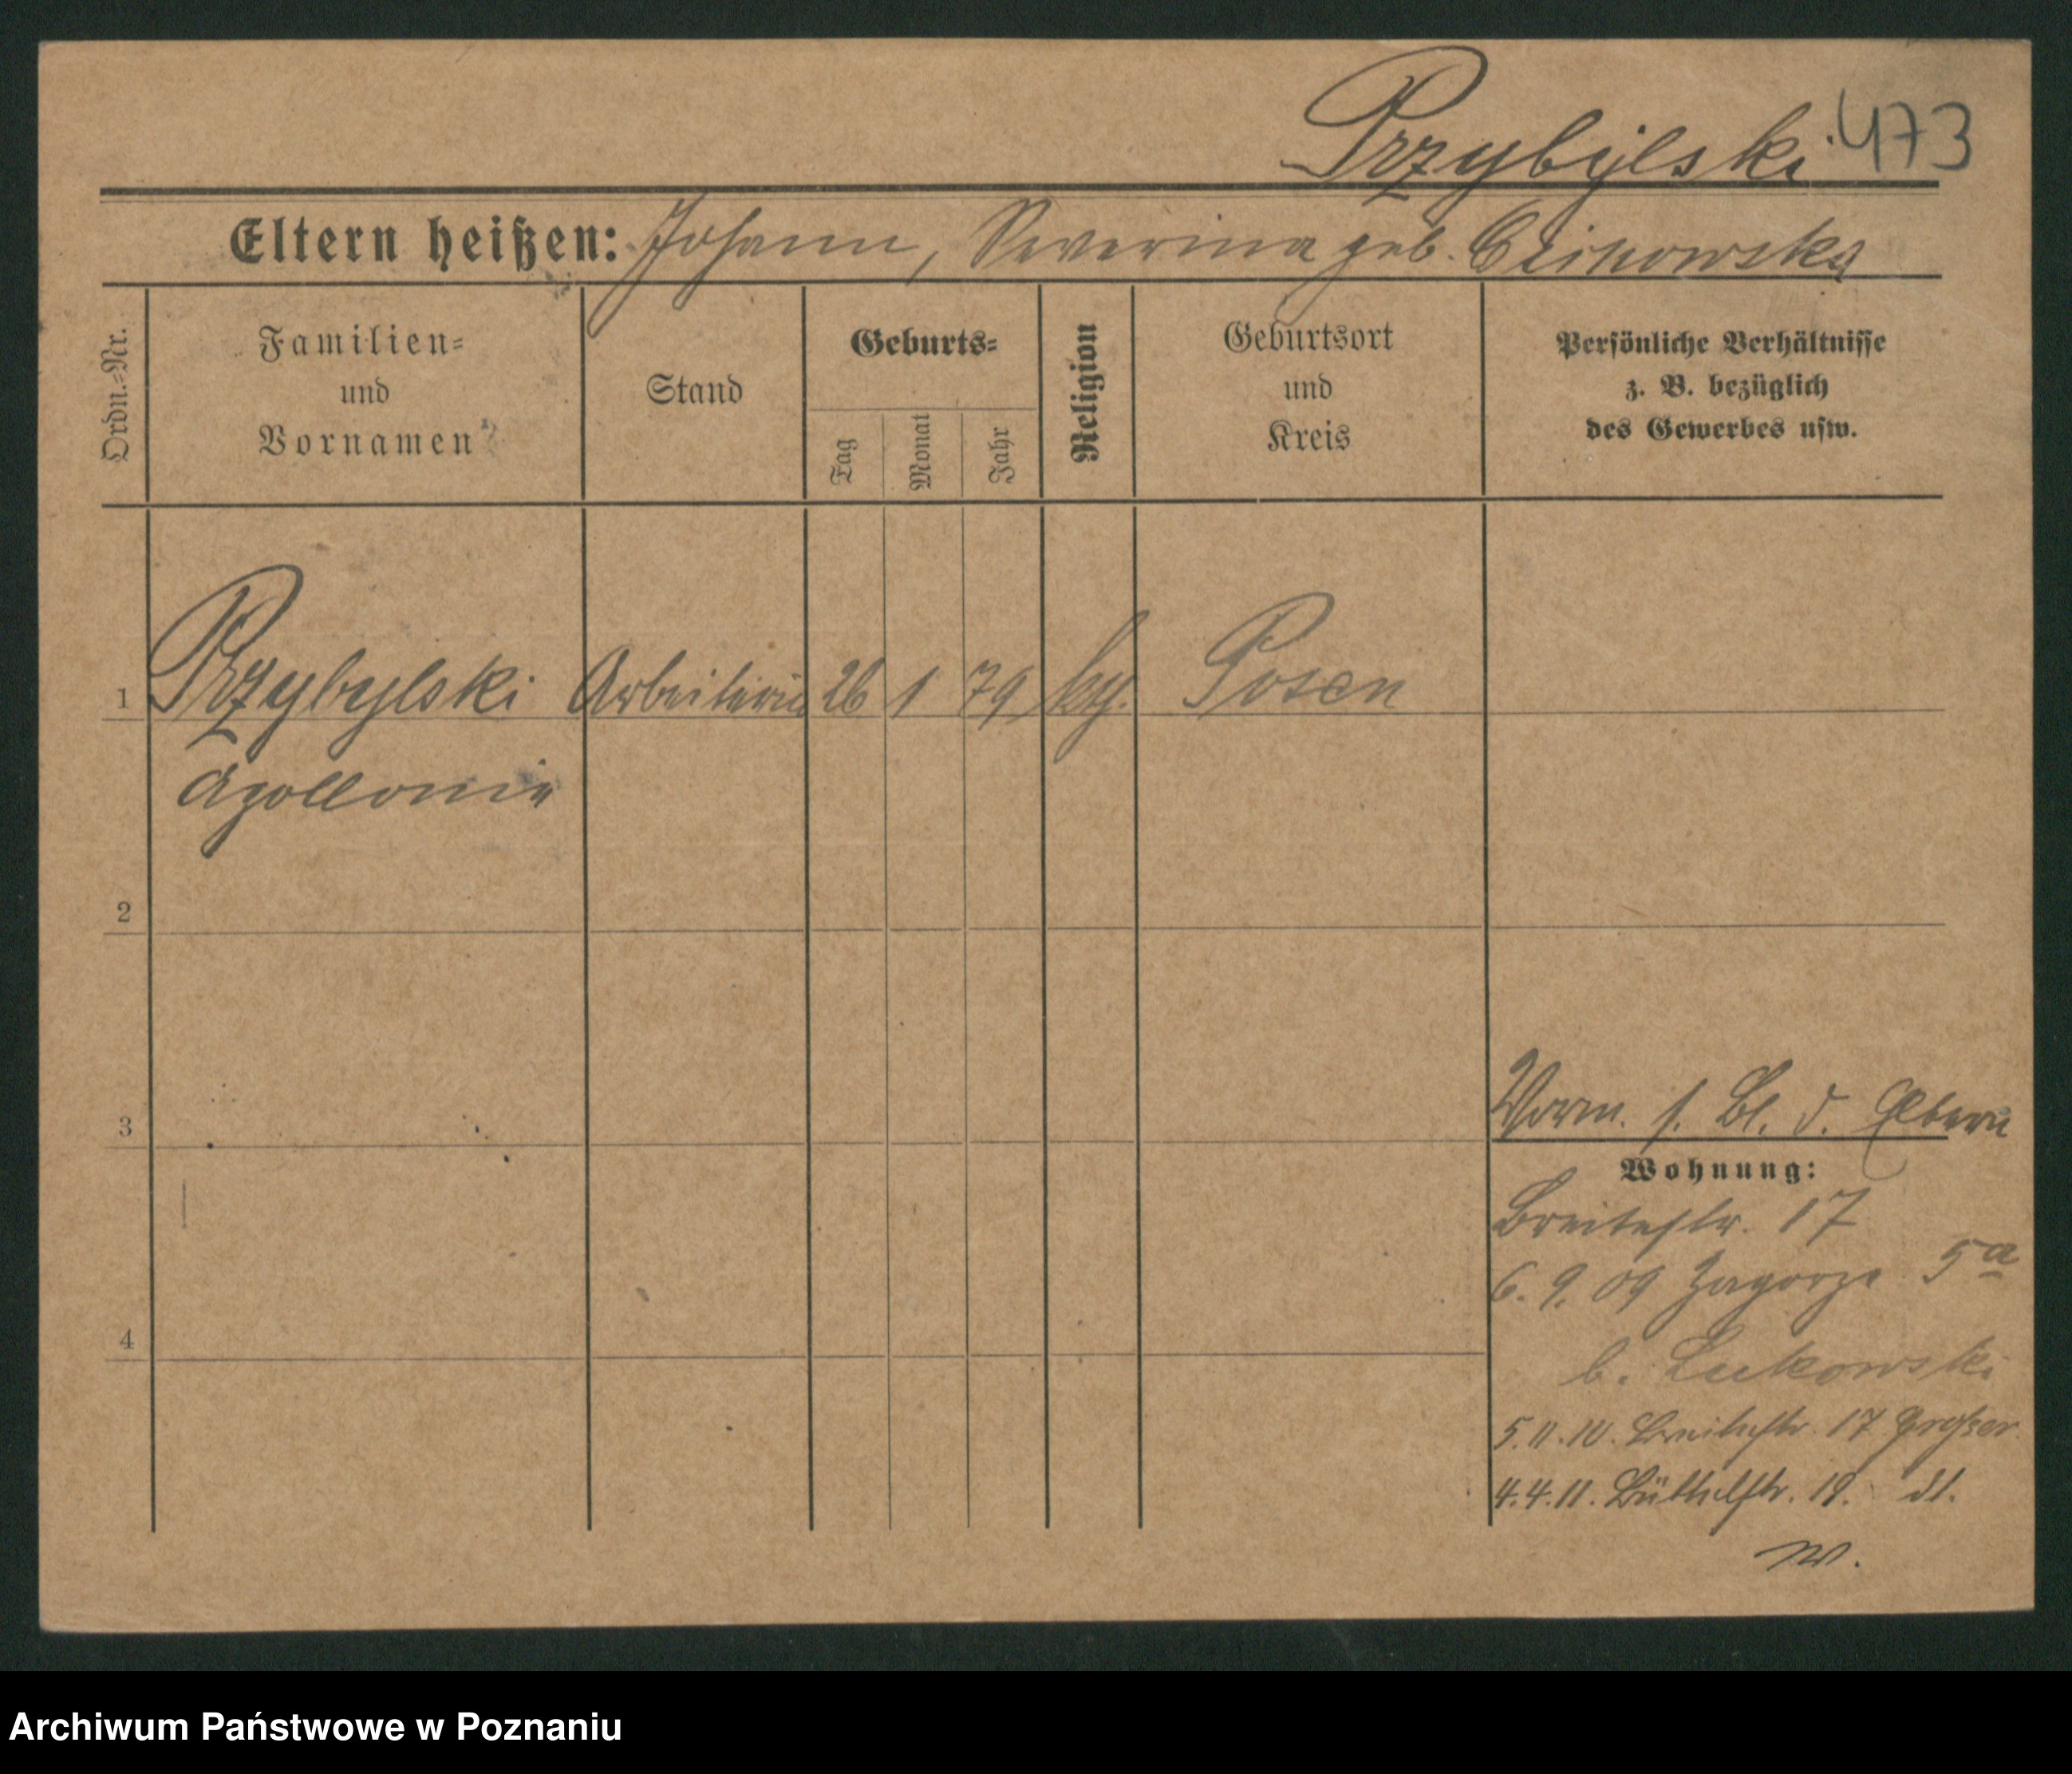 Przybylski 473
Eltern heißen: Johann, Severina geb.
Ordn.-Nr.
Familien-
und
Vornamen
Stand
Geburts-
Tag
Monat
Jahr
Religion
Geburtsort
und
Kreis
Persönliche Verhältnisse
z. B. bezüglich
des Gewerbes usw.
1 Przybylski Arbeiterin 26 1 79 kth. Posen
Apollonia
2
3
Vorm. s. Bl. d. Eltern
Wohnung:
Breitestr. 17
6. 9. 09 Zagorze 5a
4
b. Lukowski
5.11.10. Breitestr. 17
4.4.11. Büttelstr. 19.
W.
Archiwum Państwowe w Poznaniu